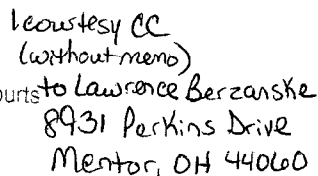 1 courtesy CC
(without memo)
to Lawrence Berzanske
8931 Perkins Drive
Mentor, OH 44060